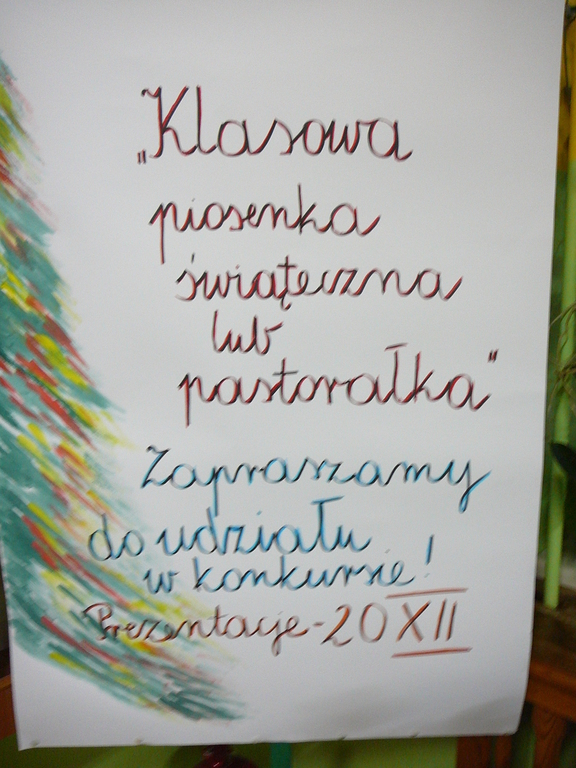 „Klasowa
piosenka
świąteczna
lub
pastorałka"
Zapraszamy
do udziału
w konkursie!
Prezentacje - 20 XII